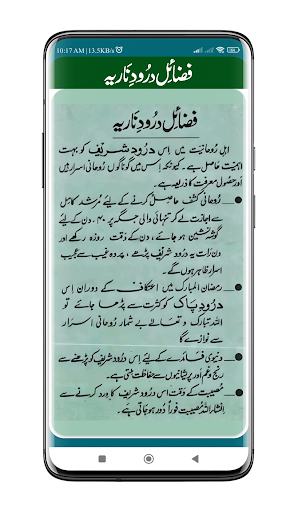 10:17 AM | 13.5KB/s
فضائل درود ناریہ
فضائل درود ناریہ
اہل روحانیت میں اس درود شریف کو بہت
اہمیت حاصل ہے۔ کیونکہ اس میں گوناگوں روحانی اسرار ہیں
اور حصول معرفت کا ذریعہ ہے۔
روحانی کشف حاصل کرنے کے لئے مرشد کامل
سے اجازت لے کر تنہائی والی جگہ پر ۴۰ دن کے لئے
گوشہ نشین ہو جائے، دن کے وقت روزہ رکھے اور
دن رات یہ درود شریف پڑھے، پردہ غیب سے عجیب
اسرار ظاہر ہوں گے۔
رمضان المبارک میں اعتکاف کے دوران اس
درود پاک کو کثرت سے پڑھا جائے تو
اللہ تبارک و تعالیٰ بے شمار روحانی اسرار
سے نوازے گا
دنیوی فائدے کے لئے اس درود شریف کو پڑھنے سے
رنج و غم اور پریشانیوں سے حفاظت ملتی ہے۔
مصیبت کے وقت اس درود شریف کا ورد کرنے سے
انشاء اللہ مصیبت فوراً دور ہو جاتی ہے۔